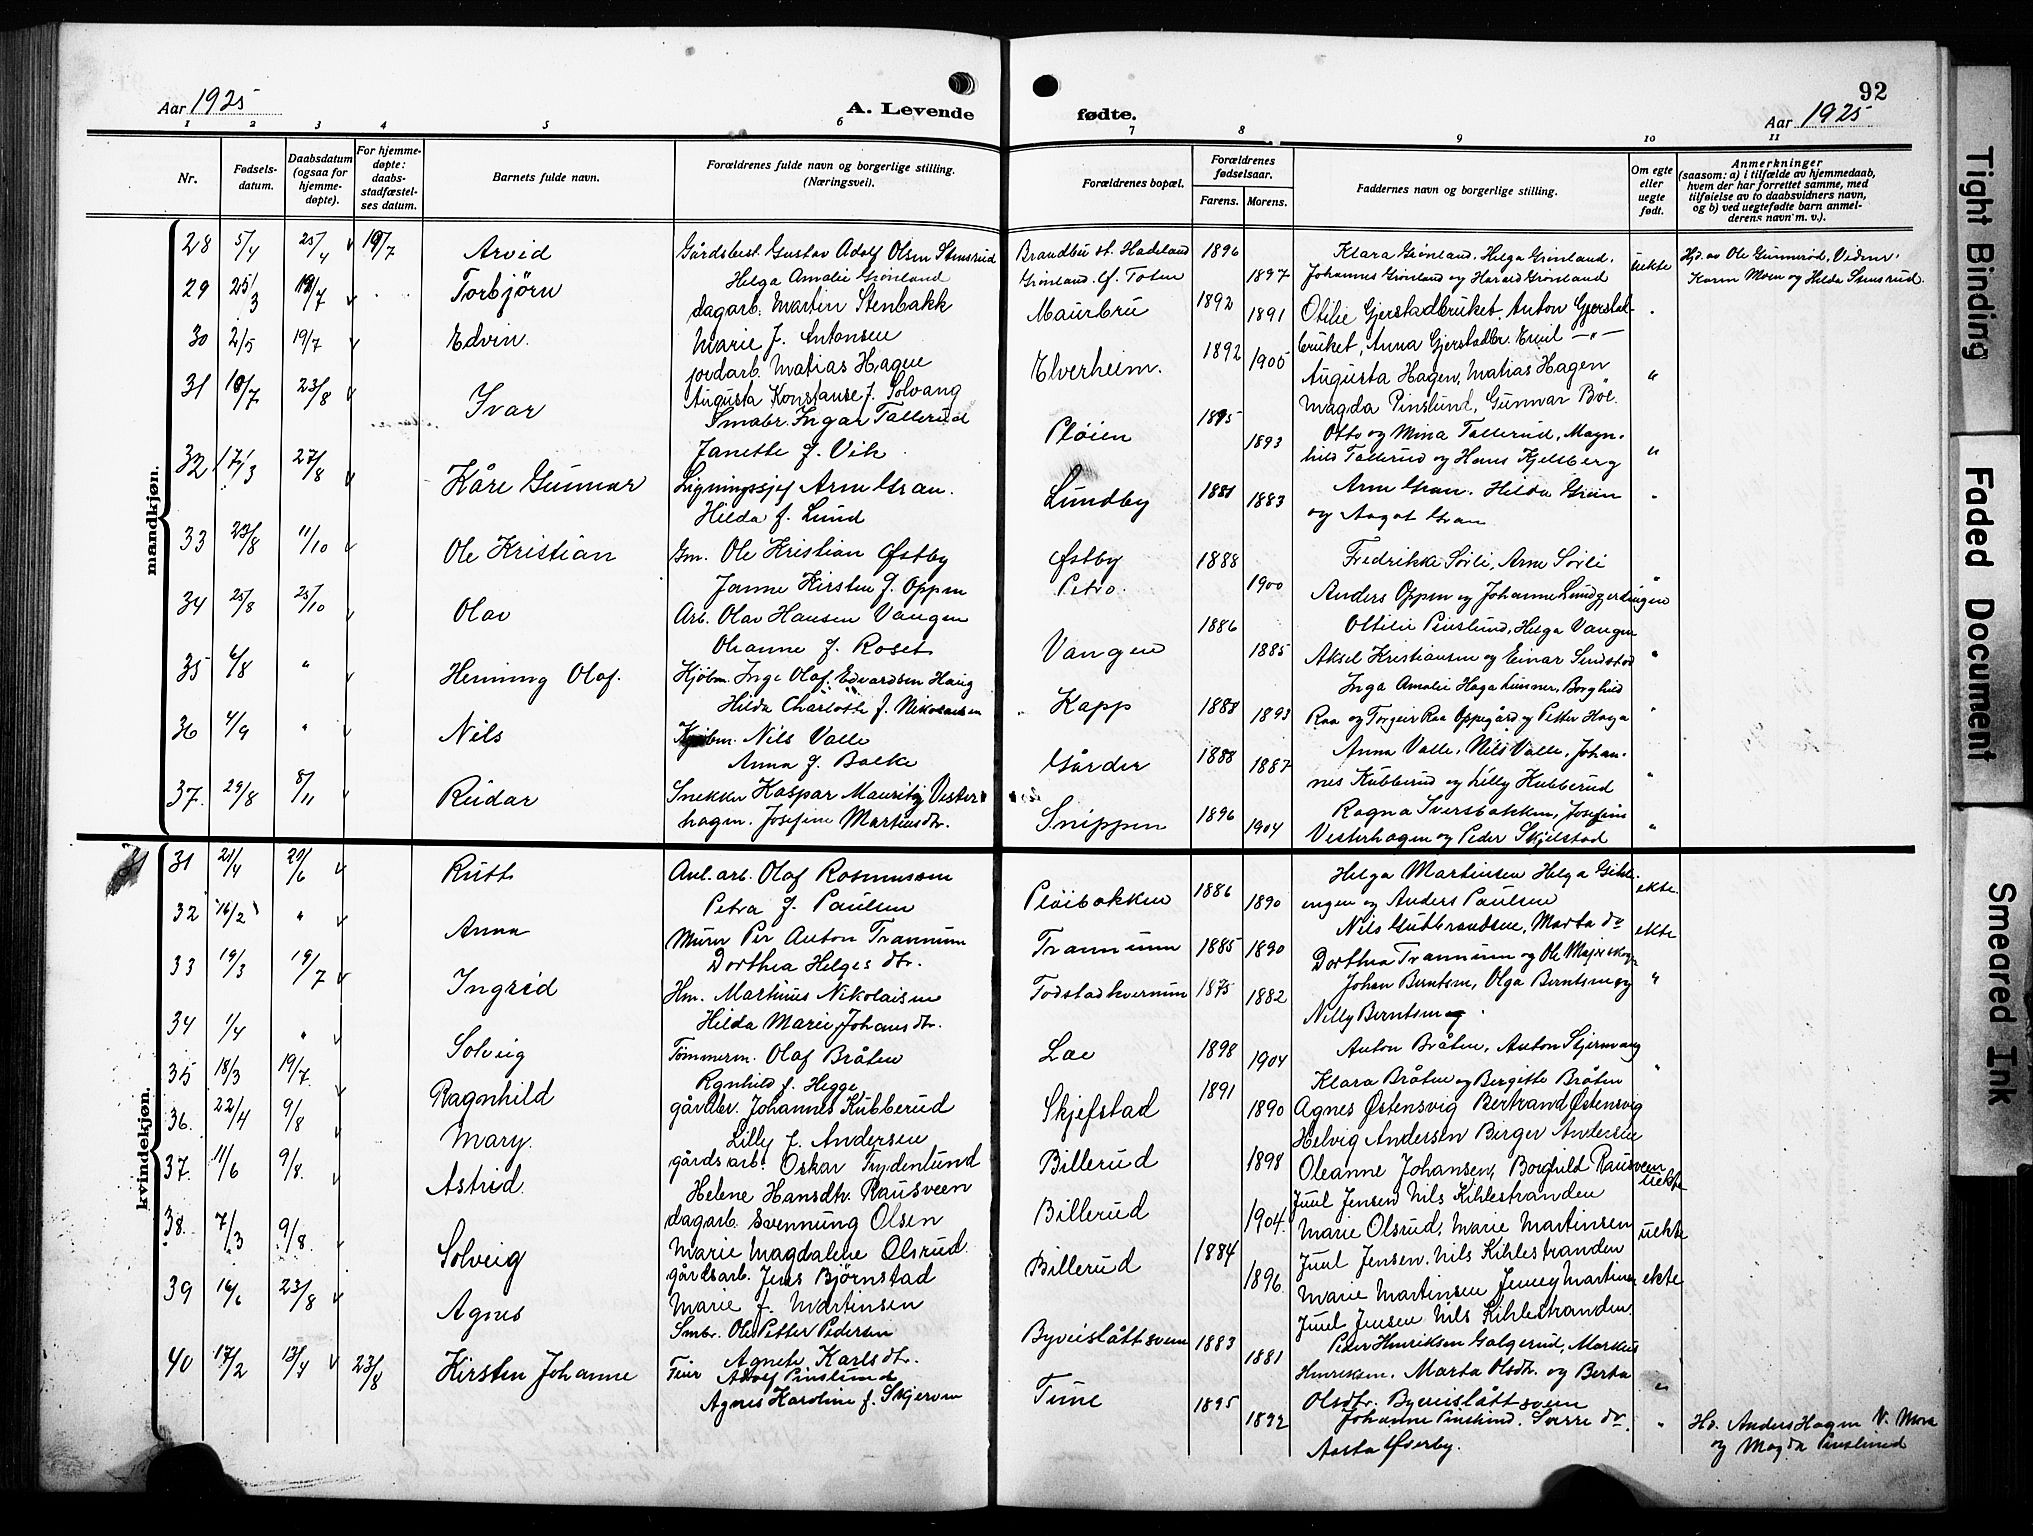 Aar 1925
A. Levende
fødte.
92
Aar 1925
1 2 3 4 5 6 7 8 9 10 11
Nr.
Fødsels-
datum.
Daabsdatum
(ogsaa for
hjemme-
døpte).
For hjemme-
døpte:
daabs-
stadfæstel-
ses datum.
Barnets fulde navn.
Forældrenes fulde navn og borgerlige stilling.
(Næringsvei).
Forældrenes bopæl.
Forældrenes
fødselsaar.
Farens. Morens.
Faddernes navn og borgerlige stilling.
Om egte
eller
uegte
født.
Anmerkninger
(saasom: a) i tilfælde av hjemmedaab,
hvem der har forrettet samme, med
tilføielse av to daabsvidners navn,
og b) ved uegtefødte barn anmel-
derens navn m. v.).
mandkjøn.
28 5/4 25/4 19/7 Arvid Gårdsbest. Gustav Adolf Olsen Stensrud Brandbu st. Hadeland 1896 Klara Grønland, Helga Grønland, uekte Hjd. av Ole Gunnerød,
Helga Amalie Grønland Grønland. Toten 1897 Johannes Grønland og Harald Grønland Karen Moen og Hilda Stensrud.
29 25/3 19/7 Torbjørn dagarb. Martin Stenbakk Maurbru 1892 Otilie Gjerstadbruket, Anton Gjerstad-
Marie f. Antonsen 1891 bruket, Anna Gjerstadbr. Emil —"—
30 2/5 19/7 Edvin. jordarb. Matias Hagen Elverheim. 1892 Augusta Hagen, Matias Hagen "
Augusta Konstanse f. Solvang 1905 Magda Pinslund, Gunnar Bøe.
31 10/7 23/8 Ivar Småbr. Ingar Tallerud Pløien 1895 Otto og Mina Tallerud, Magn-
Janette f. Vik 1893 hild Tallerud og Hans Kjelsberg "
32 17/3 27/8 Kåre Gunnar Ligningssjef Arne Gran. Lundby 1881 Arne Gran. Hilda Gran "
Hilda f. Lund 1883 og Aagot Gran
33 23/8 11/10 Ole Kristian Gm. Ole Kristian Østby Østby 1888 Fredrikke Sørli, Arne Sørli "
Janne Kirsten f. Oppen Petro. 1900 Anders Oppen og Johanne Lundgerdingen
34 25/8 25/10 Olav Arb. Olav Hansen Vangen Vangen 1886 Ottilie Pinslund, Helga Vangen
Oleanne f. Roset 1885 Aksel Kristiansen og Einar Sundstad "
35 6/8 " Henning Olaf. Kjøbm. Inge Olaf Edvardsen Haug Kapp 1888 Inga Amalie Haga Lunner, Borghild
Hilda Charlotte f. Nikolaisen 1893 Raa og Torgeir Raa Oppegård og Petter Haga "
36 4/9 " Nils Kjøbm. Nils Valle Gårder 1888 Anna Valle, Nils Valle, Johan-
Anna f. Balke 1887 nes Kubberud og Lilly Kubberud "
37. 29/8 8/11 Reidar Snekker Kaspar Mauritz Vester- Snippen 1896 Ragna Iversbakken, Josefine
hagen. Josefine Martinsdtr. 1904 Vesterhagen og Peder Skjelstad "
kvindekjøn.
31 21/4 29/6 Ruth Anl. arb. Olaf Rasmussen Pløibakken 1886 Helga Martinsen Helga ekte.
Petra f. Paulsen 1890 engen og Anders Paulsen
32 16/2 " Anna Murer Per Anton Trannum Trannum 1885 Nils Gulbrandsen, Marta do ekte
Dorthea Helgesdtr. 1890 Dorthea Trannum og Ole
33 19/3 19/7 Ingrid Hm. Martinus Nikolaisen Todstadkvernum 1875 Johan Berntsen, Olga Berntsen og "
Hilda Marie Johansdtr. 1882 Nelly Berntsen.
34 1/4 " Solveig Tømmerm. Olaf Bråten Lae 1898 Anton Bråten, Anton Skjervang
Rgnhild f. Hegge 1904 Klara Bråten og Bergitte Bråten "
35 18/3 19/7 Ragnhild gårdbr. Johannes Kubberud Skjefstad 1891 Agnes Østensvig Bertrand Østensvig
Lilly f. Andersen 1890 Helvig Andersen Birger Andersen
36. 22/4 9/8 Mary. gårdsarb. Oskar Frydenlund Billerud Oleanne Johansen, Borghild Rausveen uekte
Helene Hansdtr. Rausveen 1898 Juul Jensen Nils Kihlestranden
37. 11/6 9/8. Astrid. dagarb. Svennung Olsen Billerud Marie Olsrud, Marie Martinsen uekte
Marie Magdalene Olsrud. 1904. Juul Jensen. Nils Kihlestranden
38. 7/3 9/8. Solveig gårdsarb. Jens Bjørnstad Billerud 1884 Marie Martinsen Jenney Martinsen ekte
Marie f. Martinsen 1896 Juul Jensen Nils Kihlestranden.
39 16/6 23/8 Agnes Smbr. Ole Petter Pedersen Byveislåttsveen 1883 Peder Henriksen Galgerud, Markus
Agnete Karlsdtr. 1881 Henriksen. Marta Olsdtr. og Berta "
Olsdtr. Byveislåttsveen
40 17/2 13/4 23/8 Kirsten Johanne Feier Adolf Pinslund Tune 1895 Johanne Pinslund. Sverre do. " Hd. Anders Hagen V. Mora
Agnes Karoline f. Skjerven 1892 Aasta Øverby. og Magda Pinslund
Tight Binding
Faded Document
Smeared Ink